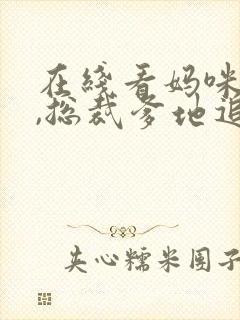 在綫看妈咪
,总裁爹地追
夹心糯米团子